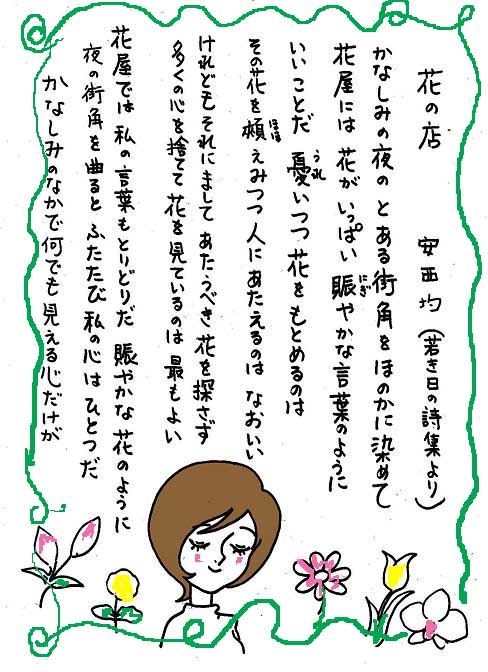 花の店 安西均(若き日の詩集より)
かなしみの夜の とある街角をほのかに染めて
花屋には 花がいっぱい 賑やかな言葉のように
いいことだ 憂いつつ花をもとめるのは
その花を頬えみつつ人にあたえるのは なおいい
けれどもそれにまして あたうべき花を探さず
多くの心を捨てて花を見ているのは 最もよい
花屋では私の言葉もとりどりだ 賑やかな花のように
夜の街角を曲ると ふたたび私の心はひとつだ
かなしみのなかで何でも見える心だけが